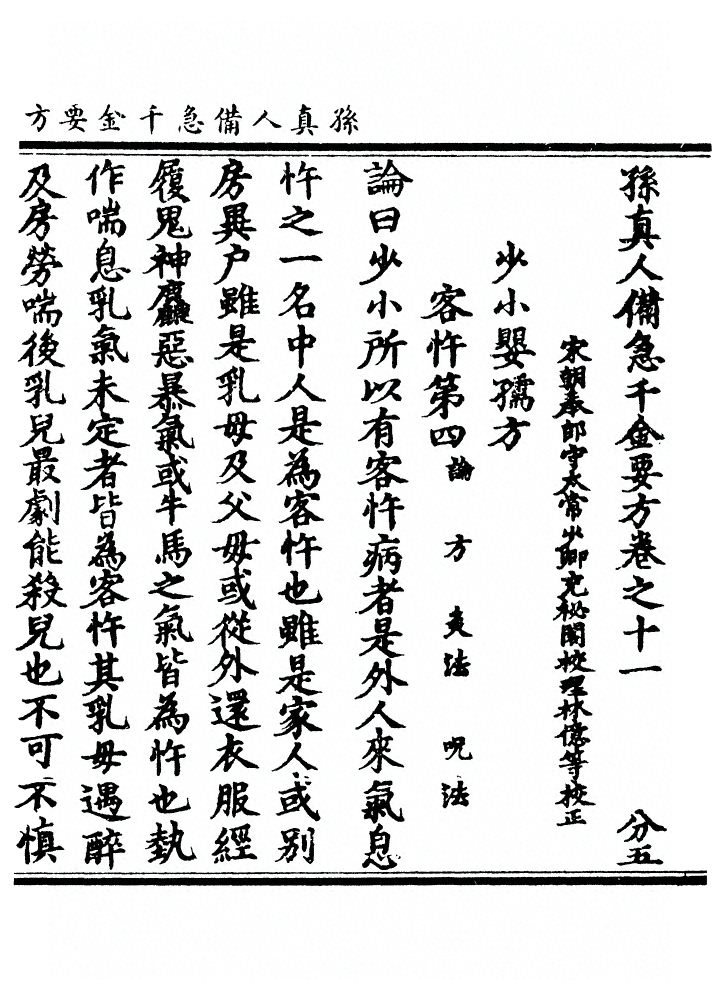 孫真人備急千金要方
孫真人備急千金要方卷之十一 分五
宋朝奉郎守太常少卿充秘閣校理林億等校正
少小嬰孺方
客忤第四 論 方 灸法 呪法
論曰少小所以有客忤病者是外人來氣息
忤之一名中人是為客忤也雖是家人或别
房異户雖是乳母及父母或從外還衣服經
履鬼神麤惡暴氣或牛馬之氣皆為忤也執
作喘息乳氣未定者皆為客忤其乳母遇醉
及房勞喘後乳兒最劇能殺兒也不可不慎